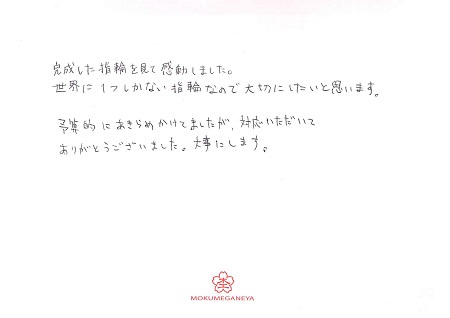 完成した指輪を見て感動しました。
世界に1つしかない指輪なので大切にしたいと思います。
予算的にあきらめかけてましたが、対応いただいて
ありがとうございました。大事にします。
MOKUMEGANEYA